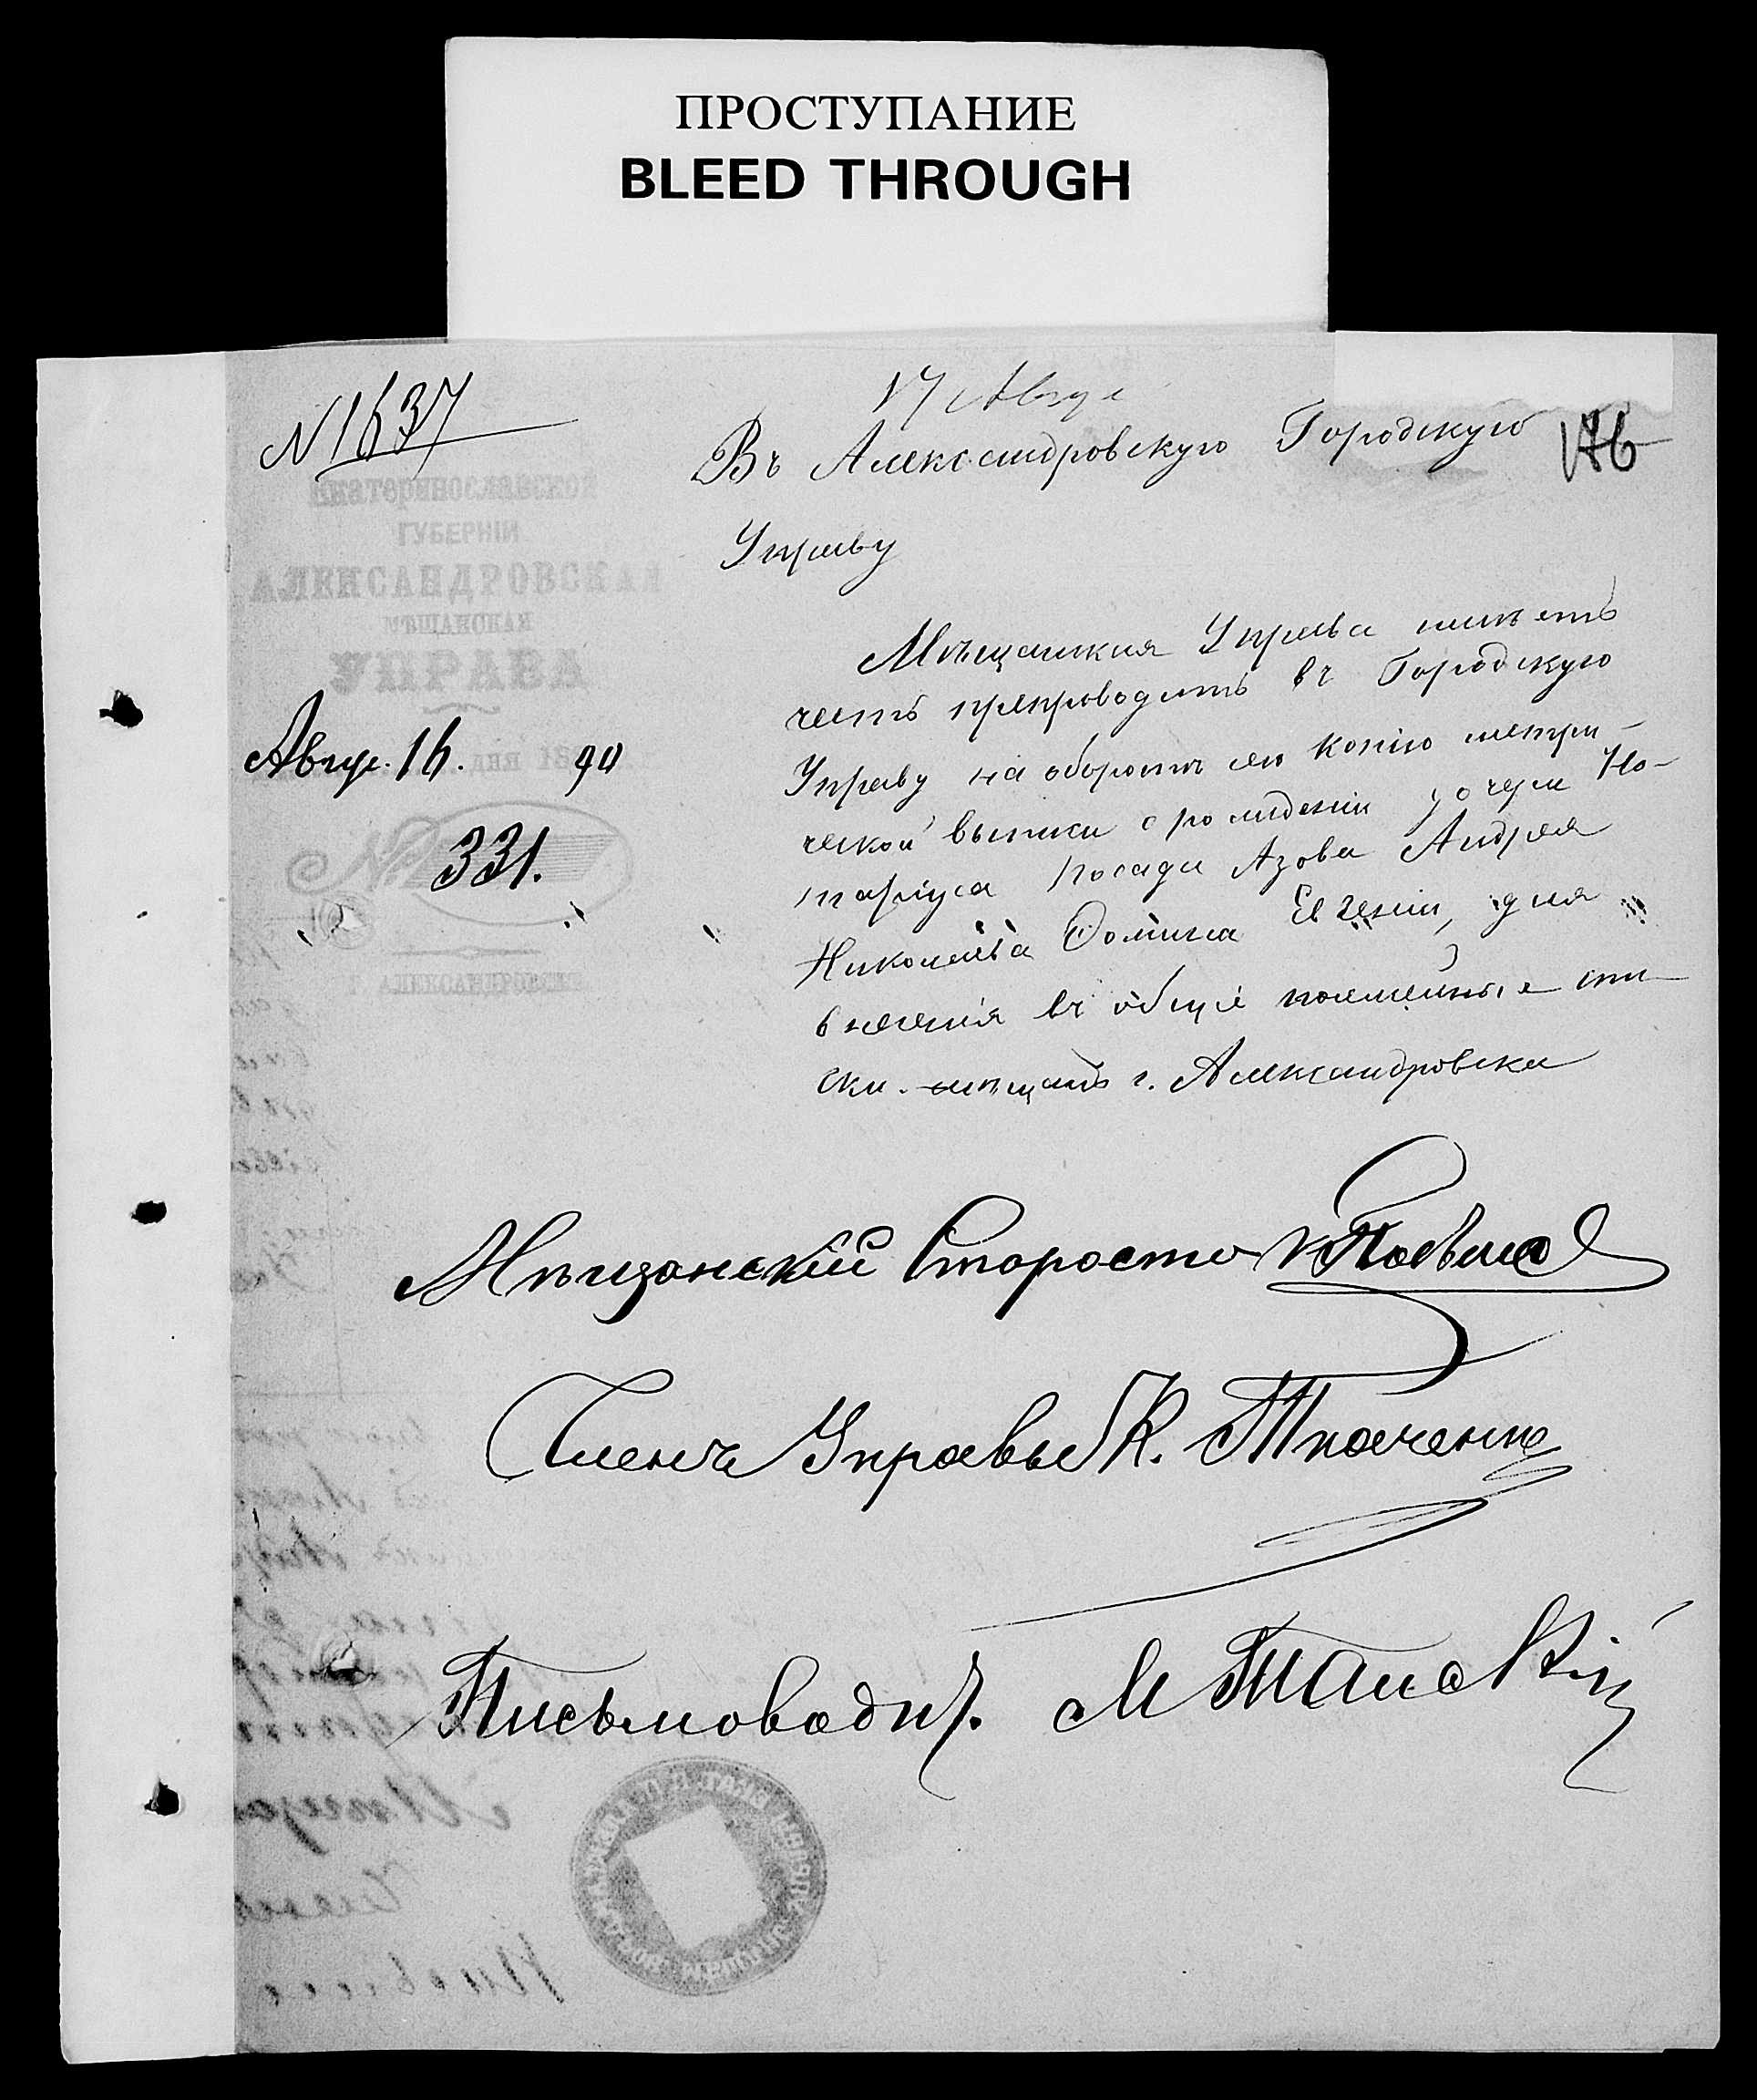 ПРОСТУПАНИЕ
BLEED THROUGH
N 1637
17 Авгус
176
Въ Александровскую Городскую
Управу
Екатеринославской
ГУБЕРНІИ
АЛЕКСАНДРОВСКАЯ
МѢЩАНСКАЯ
УПРАВА
Авгус. 16. дня 1890
№ 331.
Г. АЛЕКСАНДРОВСКЪ
Мѣщанская Управа имѣетъ
честь препроводить въ Городскую
Управу на оборотѣ сего копію метри-
ческой выписи о рожденіи дочери Но-
таріуса посада Азова Андрея
Николаева Фомина Евгеніи, для
внесенія въ общіе посемейные спи-
ски мѣщанъ г. Александровска
Мѣщанскій Староста
Членъ Управы К. Ткаченко
Письмоводит. М